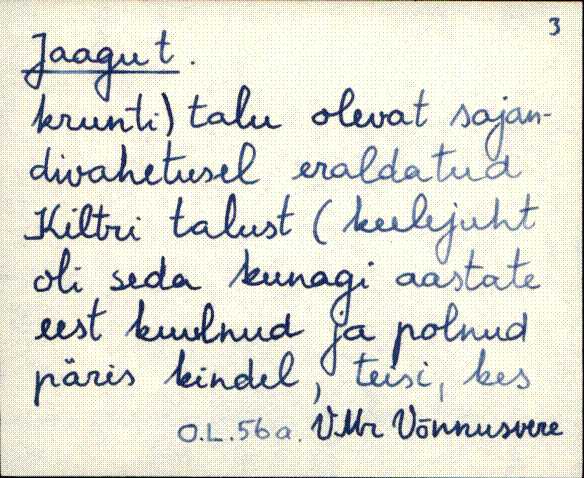 3
Jaagu t.
krunti) talu olevat sajan-
divahetusel eraldatud
Kiltri talust (keelejuht
oli seda kunagi aastate
eest kuulnud ja polnud
päris kindel, teisi, kes
O.L.56a. VMr Võnnusvere